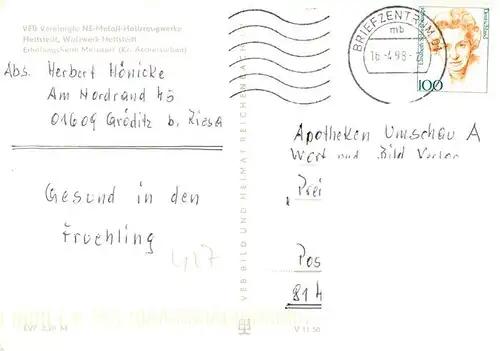 VEB Vereinigte NE-Metall-Halbzeugwerke
Hettstedt, Walzwerk Hettstedt
Erholungsheim Meisdorf (Kr. Aschersleben)
Abs. Herbert Hönicke
Am Nordrand 45
01609 Gröditz b. Riesa
Gesund in den
Fruehling
427
EVP 0,20 M
VEB BILD UND HEIMAT REICHENBACH
V 11 50
BRIEFZENTRUM 01
mb
16.-4.98-
Deutsche Bundespost
100
Apotheken Umschau A
Wort und Bild Verlag
Prei
Pos
81